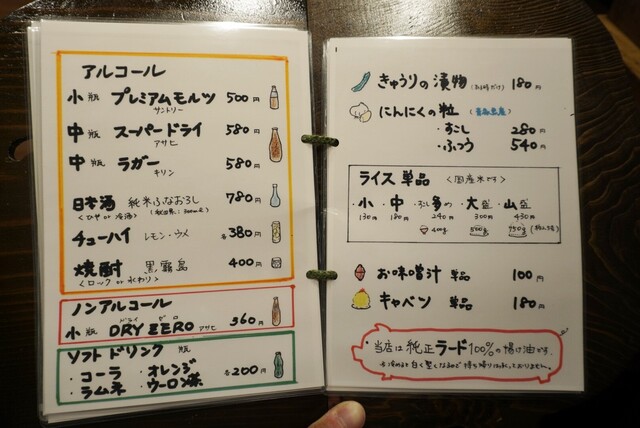 アルコール
小瓶 プレミアムモルツ 500円
サントリー
中瓶 スーパードライ 580円
アサヒ
中瓶 ラガー 580円
キリン
日本酒 純米ふなおろし 780円
<ひや or 冷酒>
チューハイ レモン・ウメ 各380円
焼酎 黒霧島 400円
<ロック or 水わり>
ノンアルコール
ドライ ゼロ
小瓶 DRY ZERO アサヒ 360円
ソフトドリンク 瓶
・コーラ ・オレンジ
・ラムネ ・ウーロン茶 各200円
きゅうりの漬物 180円
にんにくの粒 <青森県産>
・すこし 280円
・ふつう 540円
ライス 単品 <国産米です>
・小 ・中 ・すこし多め ・大盛 ・山盛
130円 180円 240円 300円 430円
400g 500g 950g
お味噌汁 単品 100円
キャベツ 単品 180円
・当店は純正ラード100%の揚げ油です。
冷めると白く堅くなるので持ち帰りは承しておりません。